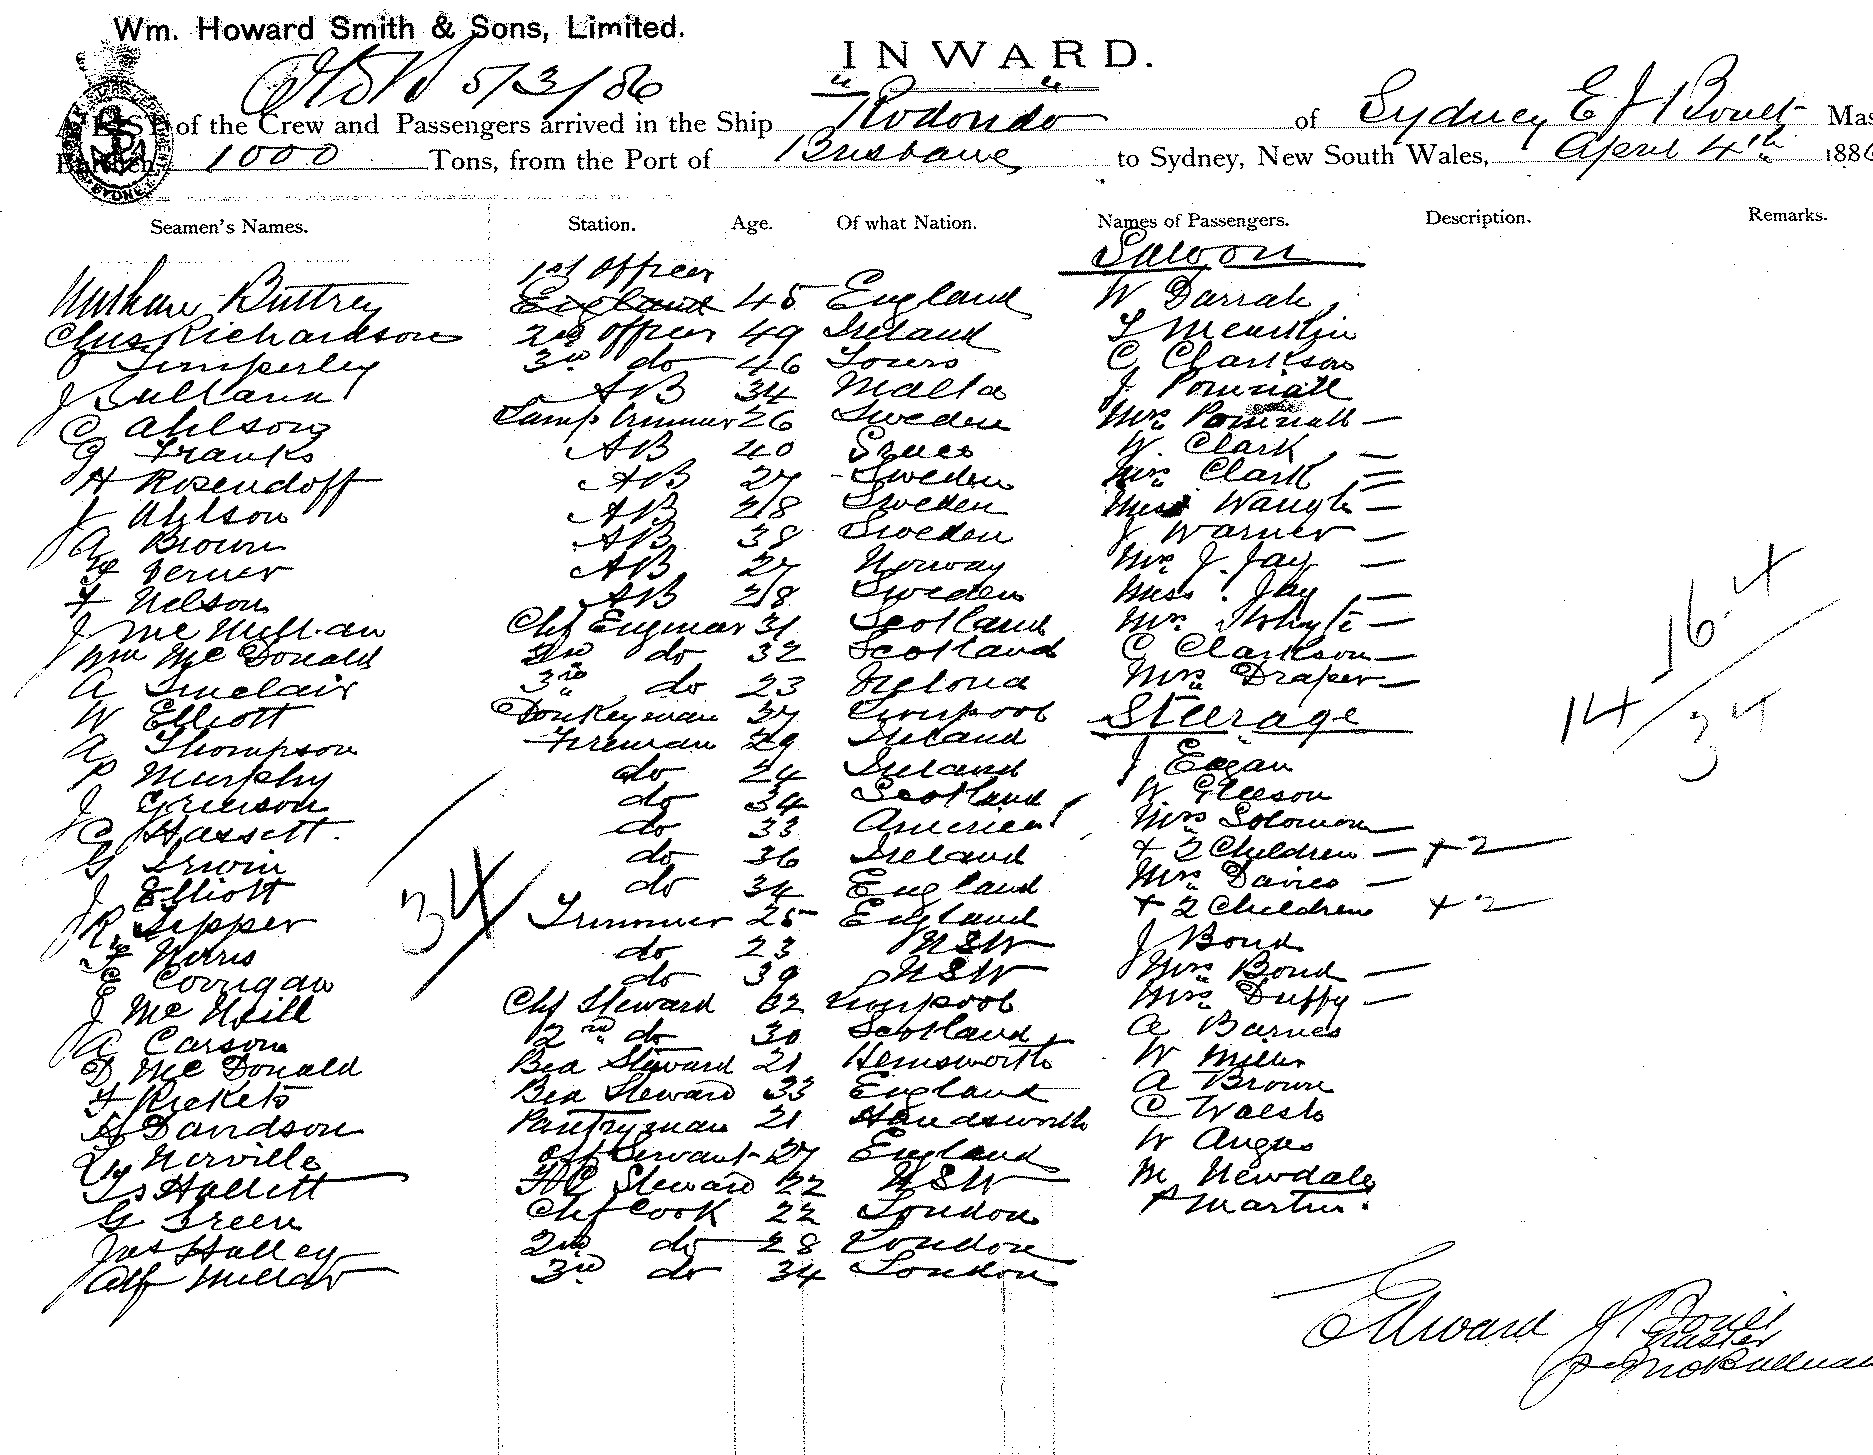 Wm. Howard Smith & Sons, Limited.
INWARD.
5/3/86
LIST of the Crew and Passengers arrived in the Ship "Rodondo" of Sydney E J Bouet Mas
Burthen 1000 Tons, from the Port of Brisbane to Sydney, New South Wales, April 4th 1886
Seamen's Names. Station. Age. Of what Nation. Names of Passengers. Description. Remarks.
Saloon
1st Officer
Buttrey England 45 England W Darrah
Chas Richardson 2nd Officer 49 Ireland
Timperley 3rd do 46 C Clarkson
J AB 34 Malta J Pownall
C Ahlson Lamp trimmer 26 Sweden Mrs Pownall —
G Franks AB 40 W. Clark —
H Rosendoff AB 27 Sweden Mrs Clark —
J Ahlson AB 28 Sweden Miss Waugh —
A Brown AB 38 Sweden J Warner —
Verner AB 27 Norway Mrs J. Jay —
F Nelson AB 28 Sweden Miss Jay —
J McMillan Chf Engineer 31 Scotland Mrs Whyte —
Wm McDonald 2nd do 32 Scotland C Clarkson —
A Sinclair 3rd do 23 Mrs Draper —
W Elliott Donkeyman 37 Liverpool Steerage
A Thompson Fireman 29 Ireland J Egan
P Murphy do 24 Ireland W Gleeson
J Grierson do 34 Scotland Mrs Solomon —
C Hassett. do 33 America + 2 Children — + 2
G Irwin do 36 Ireland Mrs Davies —
J Elliott do 34 England + 2 Children + 2
R. Tepper Trimmer 25 England J Bond
F Norris do 23 NSW Mrs Bond —
E Corrigan do 39 NSW Mrs Duffy —
J McNeill Chf Steward 32 Liverpool A Barnes
A Carson 2nd do 30 Scotland W Miller
D McDonald Bed Steward 21 Hemsworth A Brown
F Rickets Bed Steward 33 England C Walsh
H Davidson Pantryman 21 Handsworth W Angus
Nerville Off Servant 27 England M Newdale
Hallett F C Steward 22 NSW Martin.
G Green Chf Cook 22 London
Jas Halley 2nd do 28 London
Alf 3rd do 34 London
34
16.4
14/34
Edward J Bouet
Master